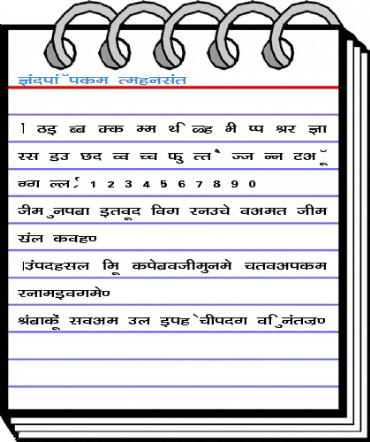 ज्ञंदपाॅ पकम त्महनसंत
। ठइ ब्ब क्क म्म र्थि ळ्ह भी प्प श्रर ज्ञा
स्स डउ छद व्व च्च फु त्त ज्ज न्न टअ
ल्ल 1 2 3 4 5 6 7 8 9 0
जीम ुनपबा इतवूद विग रनउचे वअमत जीम
संल कवहण
।उंपदहसल मिू कपेबवजीमुनमे चतवअपकम
रनामइवगमेण
श्रंबाकूे सवअम उल इपह ेचीपदग वि ुनंतज्रण